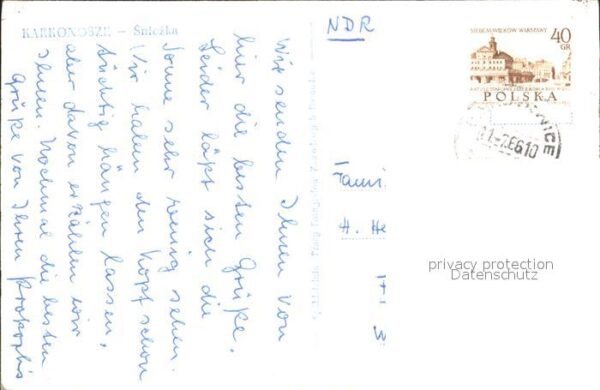 KARKONOSZE – Śnieżka
Wir senden Ihnen von
hier die besten Grüße.
Leider läßt sich die
Sonne sehr wenig sehen.
Wir haben den Kopf schon
tüchtig hängen lassen,
aber davon erzählen wir
Ihnen. Nochmal die besten
Grüße von Ihren
NDR
SIEDEM WIEKÓW WARSZAWY
40
GR
POLSKA
Fami
H. He
privacy protection
Datenschutz